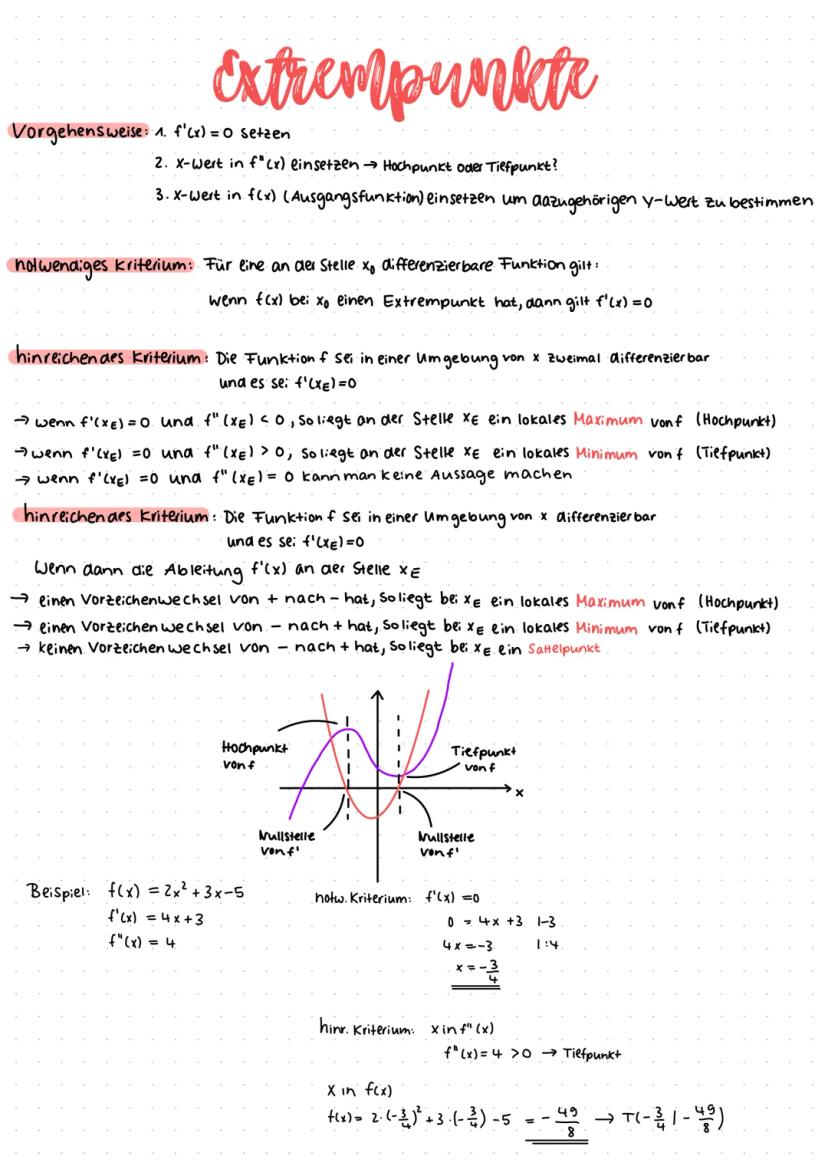 Extrempunkte
Vorgehensweise: 1. f'(x) = 0 setzen
2. x-Wert in f"(x) einsetzen → Hochpunkt oder Tiefpunkt?
3. x-Wert in f(x) (Ausgangsfunktion) einsetzen um dazugehörigen y-Wert zu bestimmen
notwendiges Kriterium: Für eine an der Stelle x₀ differenzierbare Funktion gilt:
wenn f(x) bei x₀ einen Extrempunkt hat, dann gilt f'(x) = 0
hinreichendes Kriterium: Die Funktion f sei in einer Umgebung von x zweimal differenzierbar
und es sei f'(xE) = 0
→ wenn f'(xE) = 0 und f"(xE) < 0, so liegt an der Stelle xE ein lokales Maximum von f (Hochpunkt)
→ wenn f'(xE) = 0 und f"(xE) > 0, so liegt an der Stelle xE ein lokales Minimum von f (Tiefpunkt)
→ wenn f'(xE) = 0 und f"(xE) = 0 kann man keine Aussage machen
hinreichendes Kriterium: Die Funktion f sei in einer Umgebung von x differenzierbar
und es sei f'(xE) = 0
Wenn dann die Ableitung f'(x) an der Stelle xE
→ einen Vorzeichenwechsel von + nach - hat, so liegt bei xE ein lokales Maximum von f (Hochpunkt)
→ einen Vorzeichenwechsel von - nach + hat, so liegt bei xE ein lokales Minimum von f (Tiefpunkt)
→ keinen Vorzeichenwechsel von - nach + hat, so liegt bei xE ein Sattelpunkt
Hochpunkt
von f
Tiefpunkt
von f
x
Nullstelle
von f'
Nullstelle
von f'
Beispiel: f(x) = 2x² + 3x - 5
f'(x) = 4x + 3
f"(x) = 4
notw. Kriterium: f'(x) = 0
0 = 4x + 3 |-3
4x = -3 |:4
x = -3/4
hinr. Kriterium: x in f"(x)
f"(x) = 4 > 0 → Tiefpunkt
x in f(x)
f(x) = 2·(-3/4)² + 3·(-3/4) - 5 = -49/8 → T(-3/4 | -49/8)